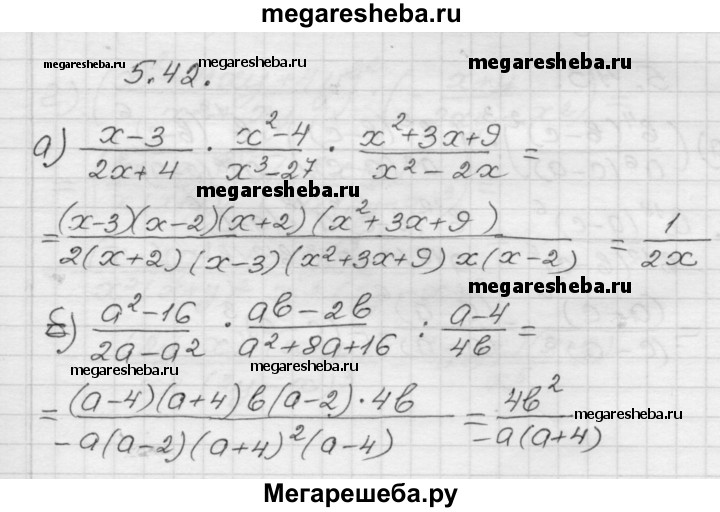 megaresheba.ru
5.42.
megaresheba.ru megaresheba.ru megaresheba.ru
а) (x-3)/(2x+4) · (x²-4)/(x³-27) · (x²+3x+9)/(x²-2x) =
megaresheba.ru
= ((x-3)(x-2)(x+2)(x²+3x+9))/(2(x+2)(x-3)(x²+3x+9)x(x-2)) = 1/(2x)
megaresheba.ru megaresheba.ru
б) (a²-16)/(2a-a²) · (ab-2b)/(a²+8a+16) : (a-4)/(4b) =
megaresheba.ru megaresheba.ru
= ((a-4)(a+4)b(a-2)·4b)/(-a(a-2)(a+4)²(a-4)) = (4b²)/(-a(a+4))
megaresheba.ru
megaresheba.ru
Мегарешеба.ру